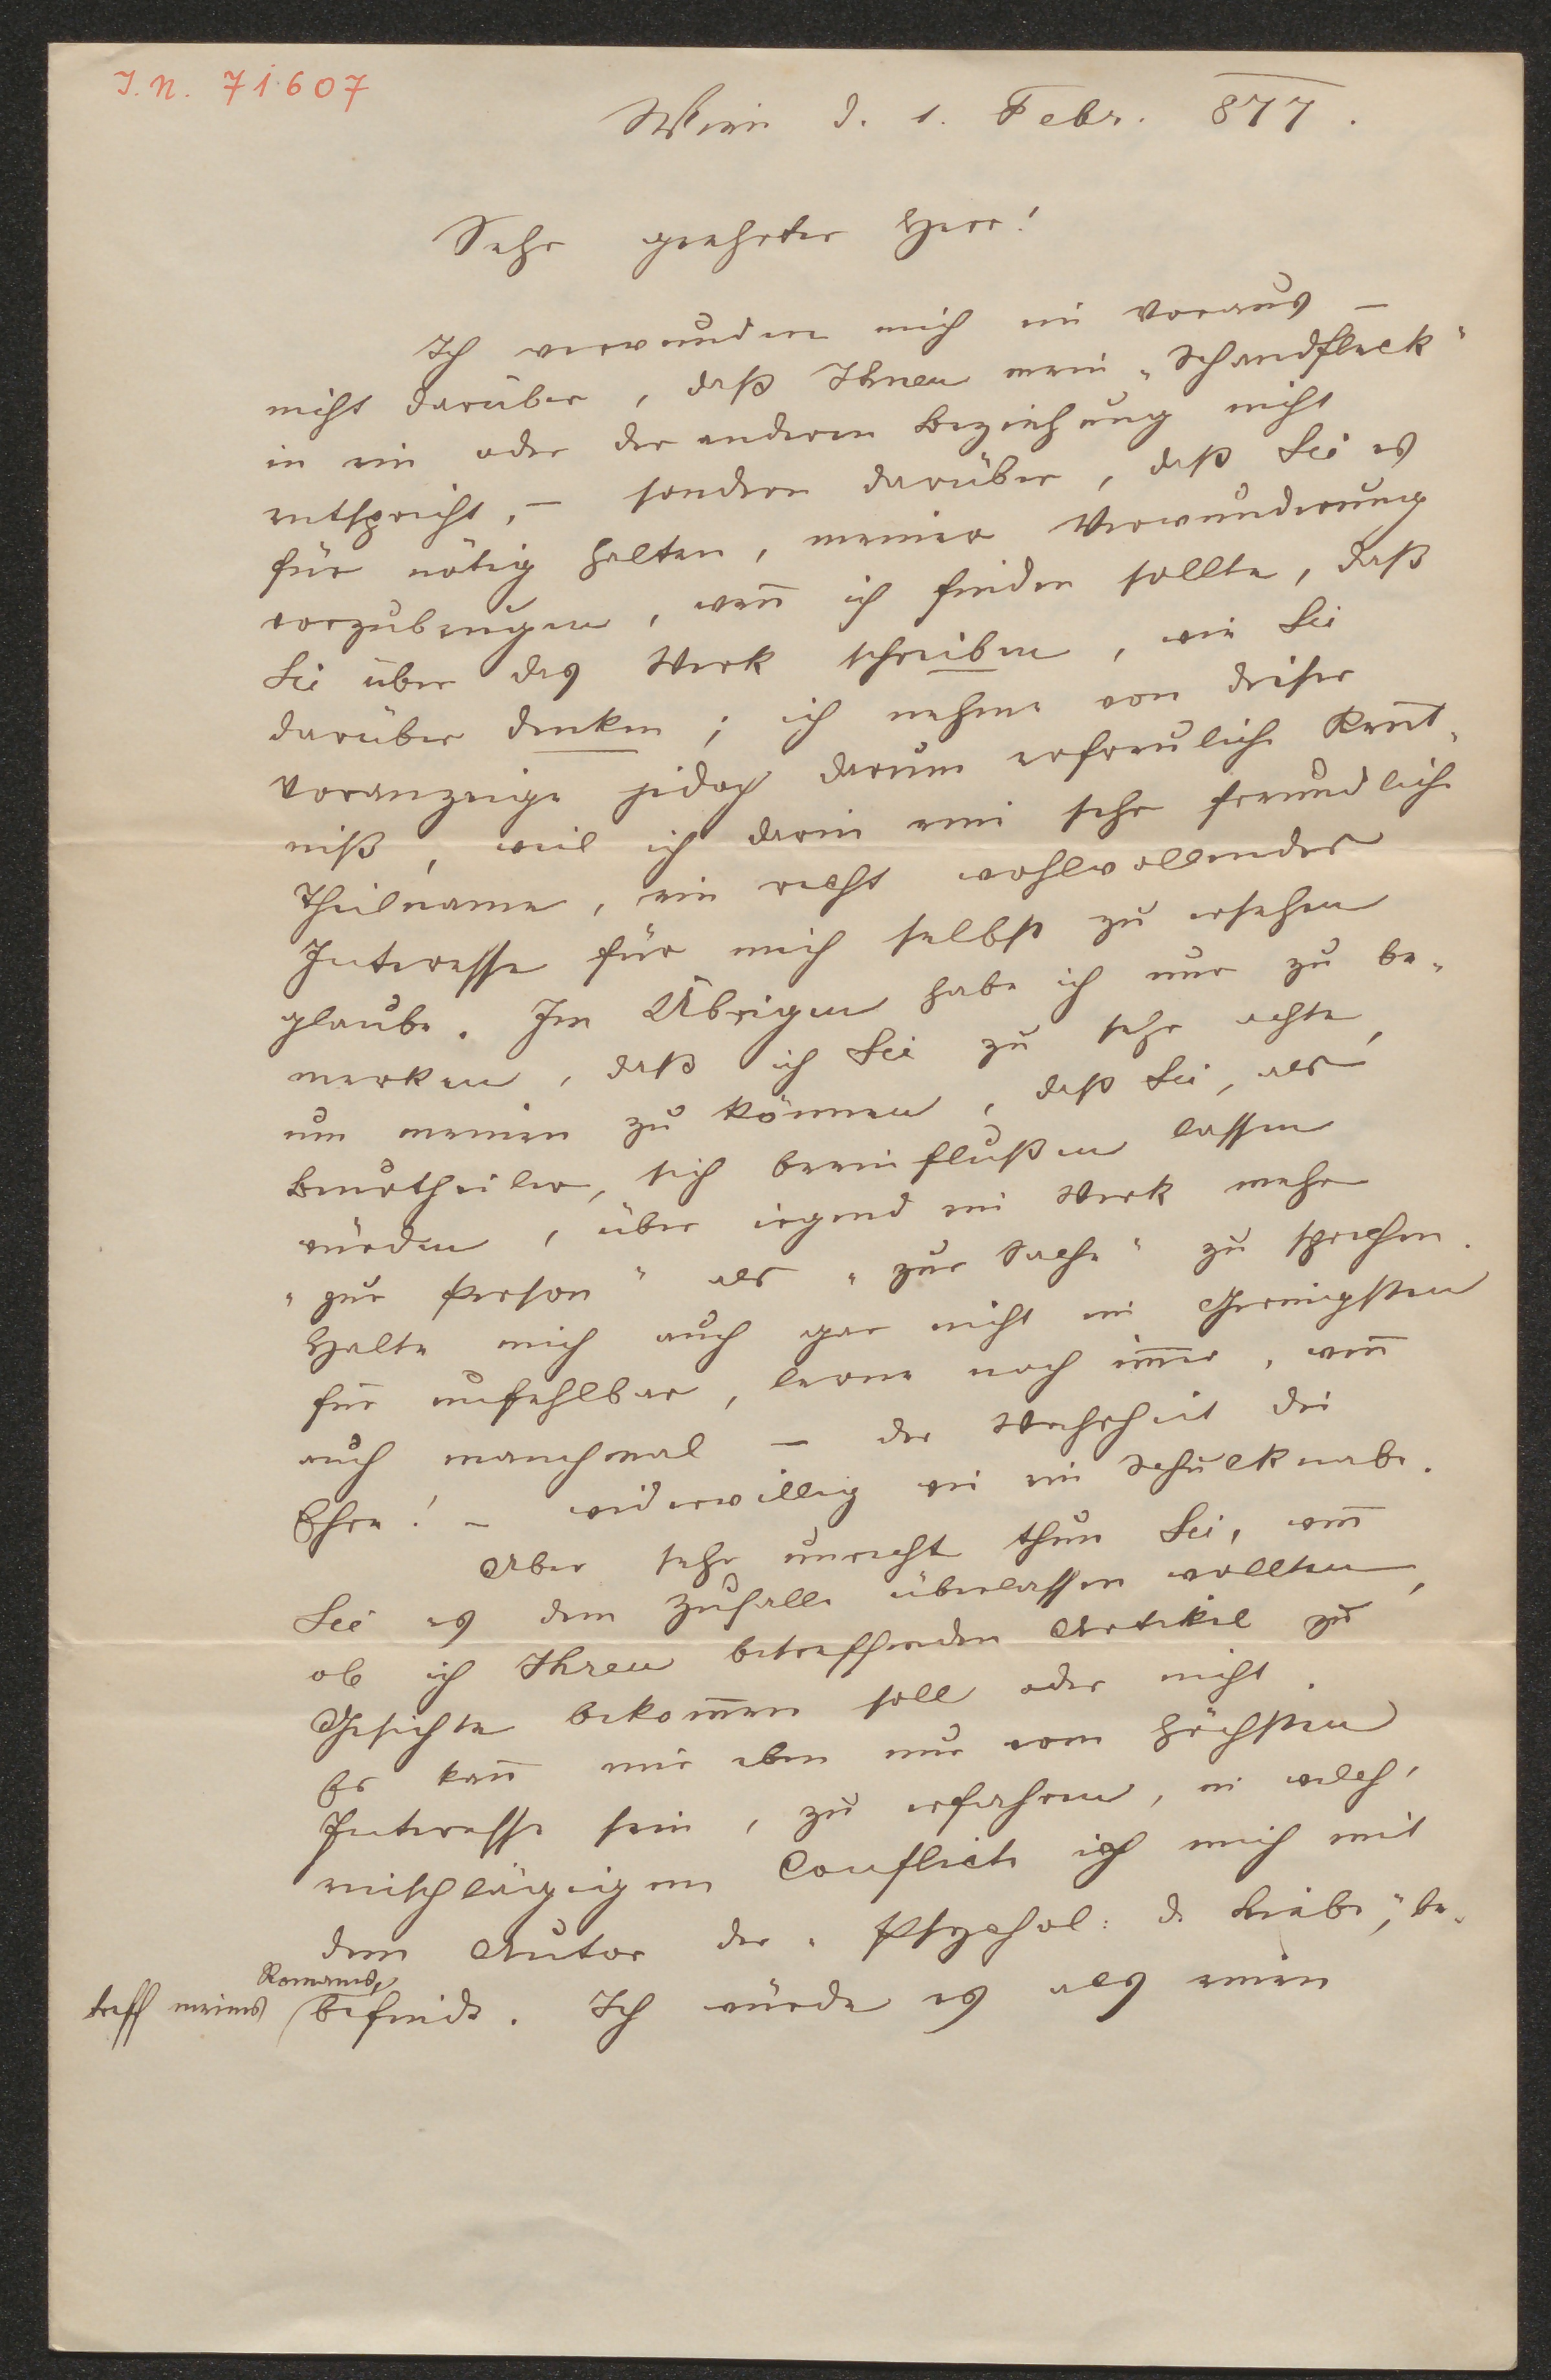 I. N. 71.607
Wien d. 1. Febr. 877.
Sehr geehrter Herr!
Ich verwundere mich im Voraus –
nicht darüber, daß Ihnen mein „Schandfleck"
in ein oder der anderen Beziehung nicht
entspricht, – sondern darüber, daß Sie es
für nötig halten, meiner Verwunderung
vorzubeugen, wen̄ ich finden sollte, daß
Sie über das Werk schreiben, wie Sie
darüber denken; ich nehme von dieser
Voranzeige jedoch darum erfreuliche Ken̄t-
niß, weil ich darin eine sehr freundliche
Theilname, ein recht wohlwollendes
Interesse für mich selbst zu ersehen
glaube. Im Übrigen habe ich nur zu be-
merken, daß ich Sie zu sehr achte,
um meinen zu können, daß Sie, als
Beurtheiler, sich beeinflußen lassen
würden, über irgend ein Werk mehr
„zur Person" als „zur Sache" zu sprechen.
Halte mich auch gar nicht im Geringsten
für unfehlbar, lerne noch im̄er, wen̄
auch manchmal – der Wahrheit die
Ehre! – widerwillig wie ein Schulknabe.
Aber sehr unrecht thun Sie, wen̄
Sie es dem Zufalle überlassen wollten,
ob ich Ihren betreffenden Artikel zu
Gesichte bekom̄en soll oder nicht.
Es kan̄ mir eben nur vom höchsten
Interesse sein, zu erfahren, in welch'
einschlägigem Conflicte ich mich mit
dem Autor der „Psychol: d. Liebe", be-
treff meines Romanes, befinde. Ich würde es als einen